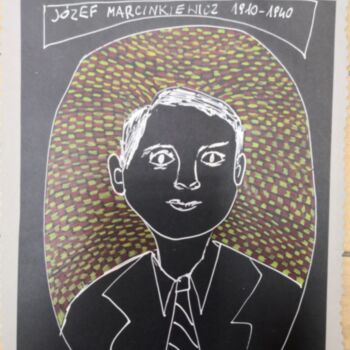 JÓZEF MARCINKIEWICZ 1910-1940